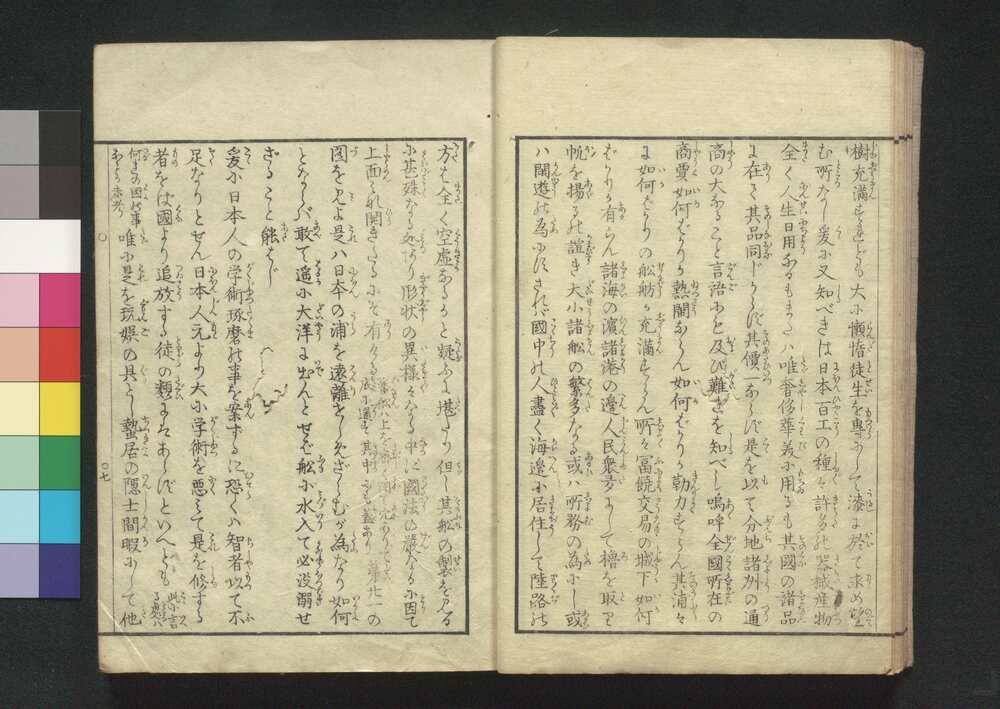 樹充満すといへども大に懶惰徒生を專にして漆に於て求め望
む所なし爰に又知べきは日本百工の種々許多の器械産物
全く人生日用なるもまた八唯奢侈華美に用るも其國の諸品
に在て其品同じからず其價ひならず是を以て分地諸州の通
高の大なること言語にも及び難きを知べし嗚呼全國所在の
商賣如何ばかりか熱閙ならん如何ばかりか勤力すらん其浦々
に如何ばかりの舩舫か充満すらん所々富饒交易の城下如何
ばかりか有らん諸海の濱諸港の邊人民衆夥にして櫓を取り
帆を揚るの諠き大小諸舩の繁多なる或ハ所務の為にし或
ハ閑遊の為にすされバ國中の人盡く海邊に居住して陸路の
方ハ全く空虚なるかと疑ふに堪たり但し其舩の製を見る
に甚殊なる形状の異様なる中に國法の厳なるに因て
上面ハ開きたるにぞ有ける
圖を見よ是ハ日本の浦を遠離をらざらしむが為なり如何
となれバ敢て遥に大洋に出んとせば舩に水入て必沒溺せ
ざること能はじ
爰に日本人の学術琢磨の事を案ずるに恐くハ智者以て不
足なりとせん日本人元より大に学術を悪ミて是を修する
者をば國より追放する徒の類にハあらずといへども
唯に是を玩娯の具とし蟄居の隠士間暇にして他
〇七